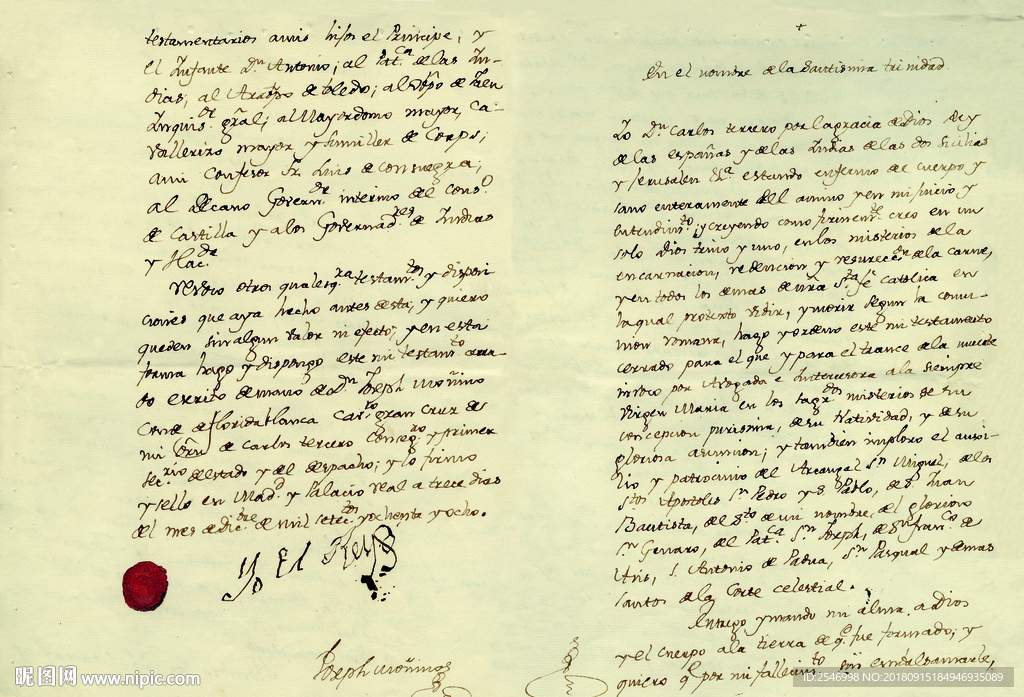 testamentarios amis hijos el Principe, y
el Infante Dn. Antonio; al Patca. de las In-
dias; al Arzpo de toledo; al
Inquisor. gral; al Mayordomo mayor, ca-
vallerizo mayor y sumiller de Corps;
ami Confesor Fr. Luis de consuegra;
al Decano Governr. interino del Conso.
de Castilla y alos Governadres. de Indias
y Hacda.
revoco otros qualesqra testamtos. y disposi
ciones que aya hecho antes desta, y quiero
queden sin algun valor ni efecto; y en esta
forma hago y dispongo este mi testamto. cerra-
do escrito demano de Dn. Joseph moñino
Conde de floridablanca Cavro. gran Cruz de
mi Orn. de Carlos tercero consego. y primer
Secrio. de estado y del despacho; y lo firmo
y sello en Madd. y Palacio real a trece dias
del mes de dicbre. de mil setectos. y ochenta y ocho.
Yo El Rey
Joseph moñino
+
En el nombre de la Santissima trinidad.
Yo Dn. Carlos tercero por la gracia de Dios Rey
de las españas y de las Indias de las dos Sicilias
y Jerusalen &a. estando enfermo de cuerpo y
sano enteramente del animo y en mi juicio y
entendimto. y creyendo como firmemte. creo en un
solo Dios trino y uno, en los misterios de la
encarnacion, redencion y resurecon. de la carne,
y en todos los demas de nra sta. fe catolica en
la qual protesto vivir, y morir segun la comu-
nion romana, hago y ordeno este mi testamento
cerrado para el que y para el trance de la muerte
invoco por Abogada e Intercesora a la siempre
Virgen Maria en los sagrdos misterios de su
concepcion purisima, de su Natividad, y de su
gloriosa asuncion; y tambien imploro el auxi-
lio y patrocinio del Arcangel Sn. Miguel; de los
Stos Apostoles Sn. Pedro y S. Pablo, de S. Juan
Bautista, del Sto. de mi nombre, del glorioso
Sn. Genaro, del Patca. Sn. Joseph, de Sn. franco. de
Asis, S. Antonio de Padua, Sn. Pasqual y demas
santos de la Corte celestial.
Entrego y mando mi alma, a Dios
y el cuerpo a la tierra de q. fue formado; y
quiero q. por mi fallecimto. sin embalsamarle,
昵图网 www.nipic.com
ID:2546998 NO:20180915184946935089